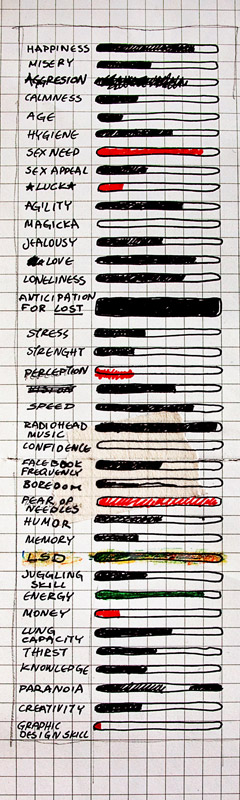 HAPPINESS
MISERY
AGGRESION
CALMNESS
AGE
HYGIENE
SEX NEED
SEX APPEAL
★LUCK★
AGILITY
MAGICKA
JEALOUSY
LOVE
LONELINESS
ANTICIPATION
FOR LOST
STRESS
STRENGHT
PERCEPTION
SPEED
RADIOHEAD
MUSIC
CONFIDENCE
FACEBOOK
FREQUENCY
BOREDOM
FEAR OF
NEEDLES
HUMOR
MEMORY
LSD
JUGGLING
SKILL
ENERGY
MONEY
LUNG
CAPACITY
THIRST
KNOWLEDGE
PARANOIA
CREATIVITY
GRAPHIC
DESIGN SKILL